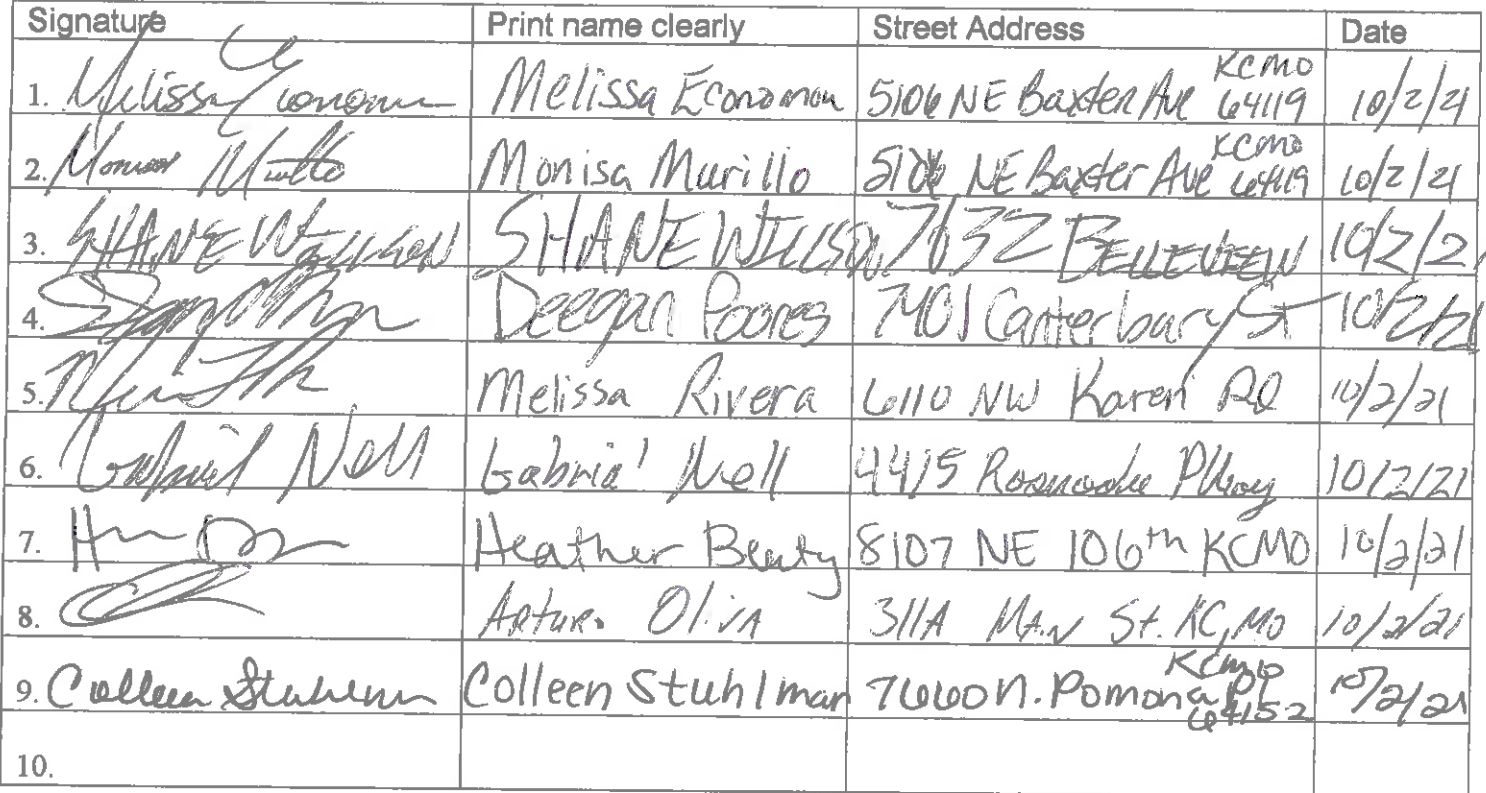 Signature Print name clearly Street Address Date
KCMO
1. Melissa Economou Melissa Economou 5106 NE Baxter Ave 64119 10/2/21
KCMO
2. Monisa Murillo Monisa Murillo 5106 NE Baxter Ave 64119 10/2/21
3. SHANE WILLSON SHANE WILLSON 7632 BELLEVIEW 10/2/21
4. Deegan 7401 Canterbury St 10/2/21
5. Melissa Rivera 6110 NW Karen Rd 10/2/21
6. Gabriel Nell Gabriel Nell 4415 Pkwy 10/2/21
7. Heather Beaty 8107 NE 106th KCMO 10/2/21
8. Arturo Oliva 311A Main St. KC, MO 10/2/21
KCMO
9. Colleen Stuhlman Colleen Stuhlman 7660 N. Pomona Pl 10/2/21
64152
10.